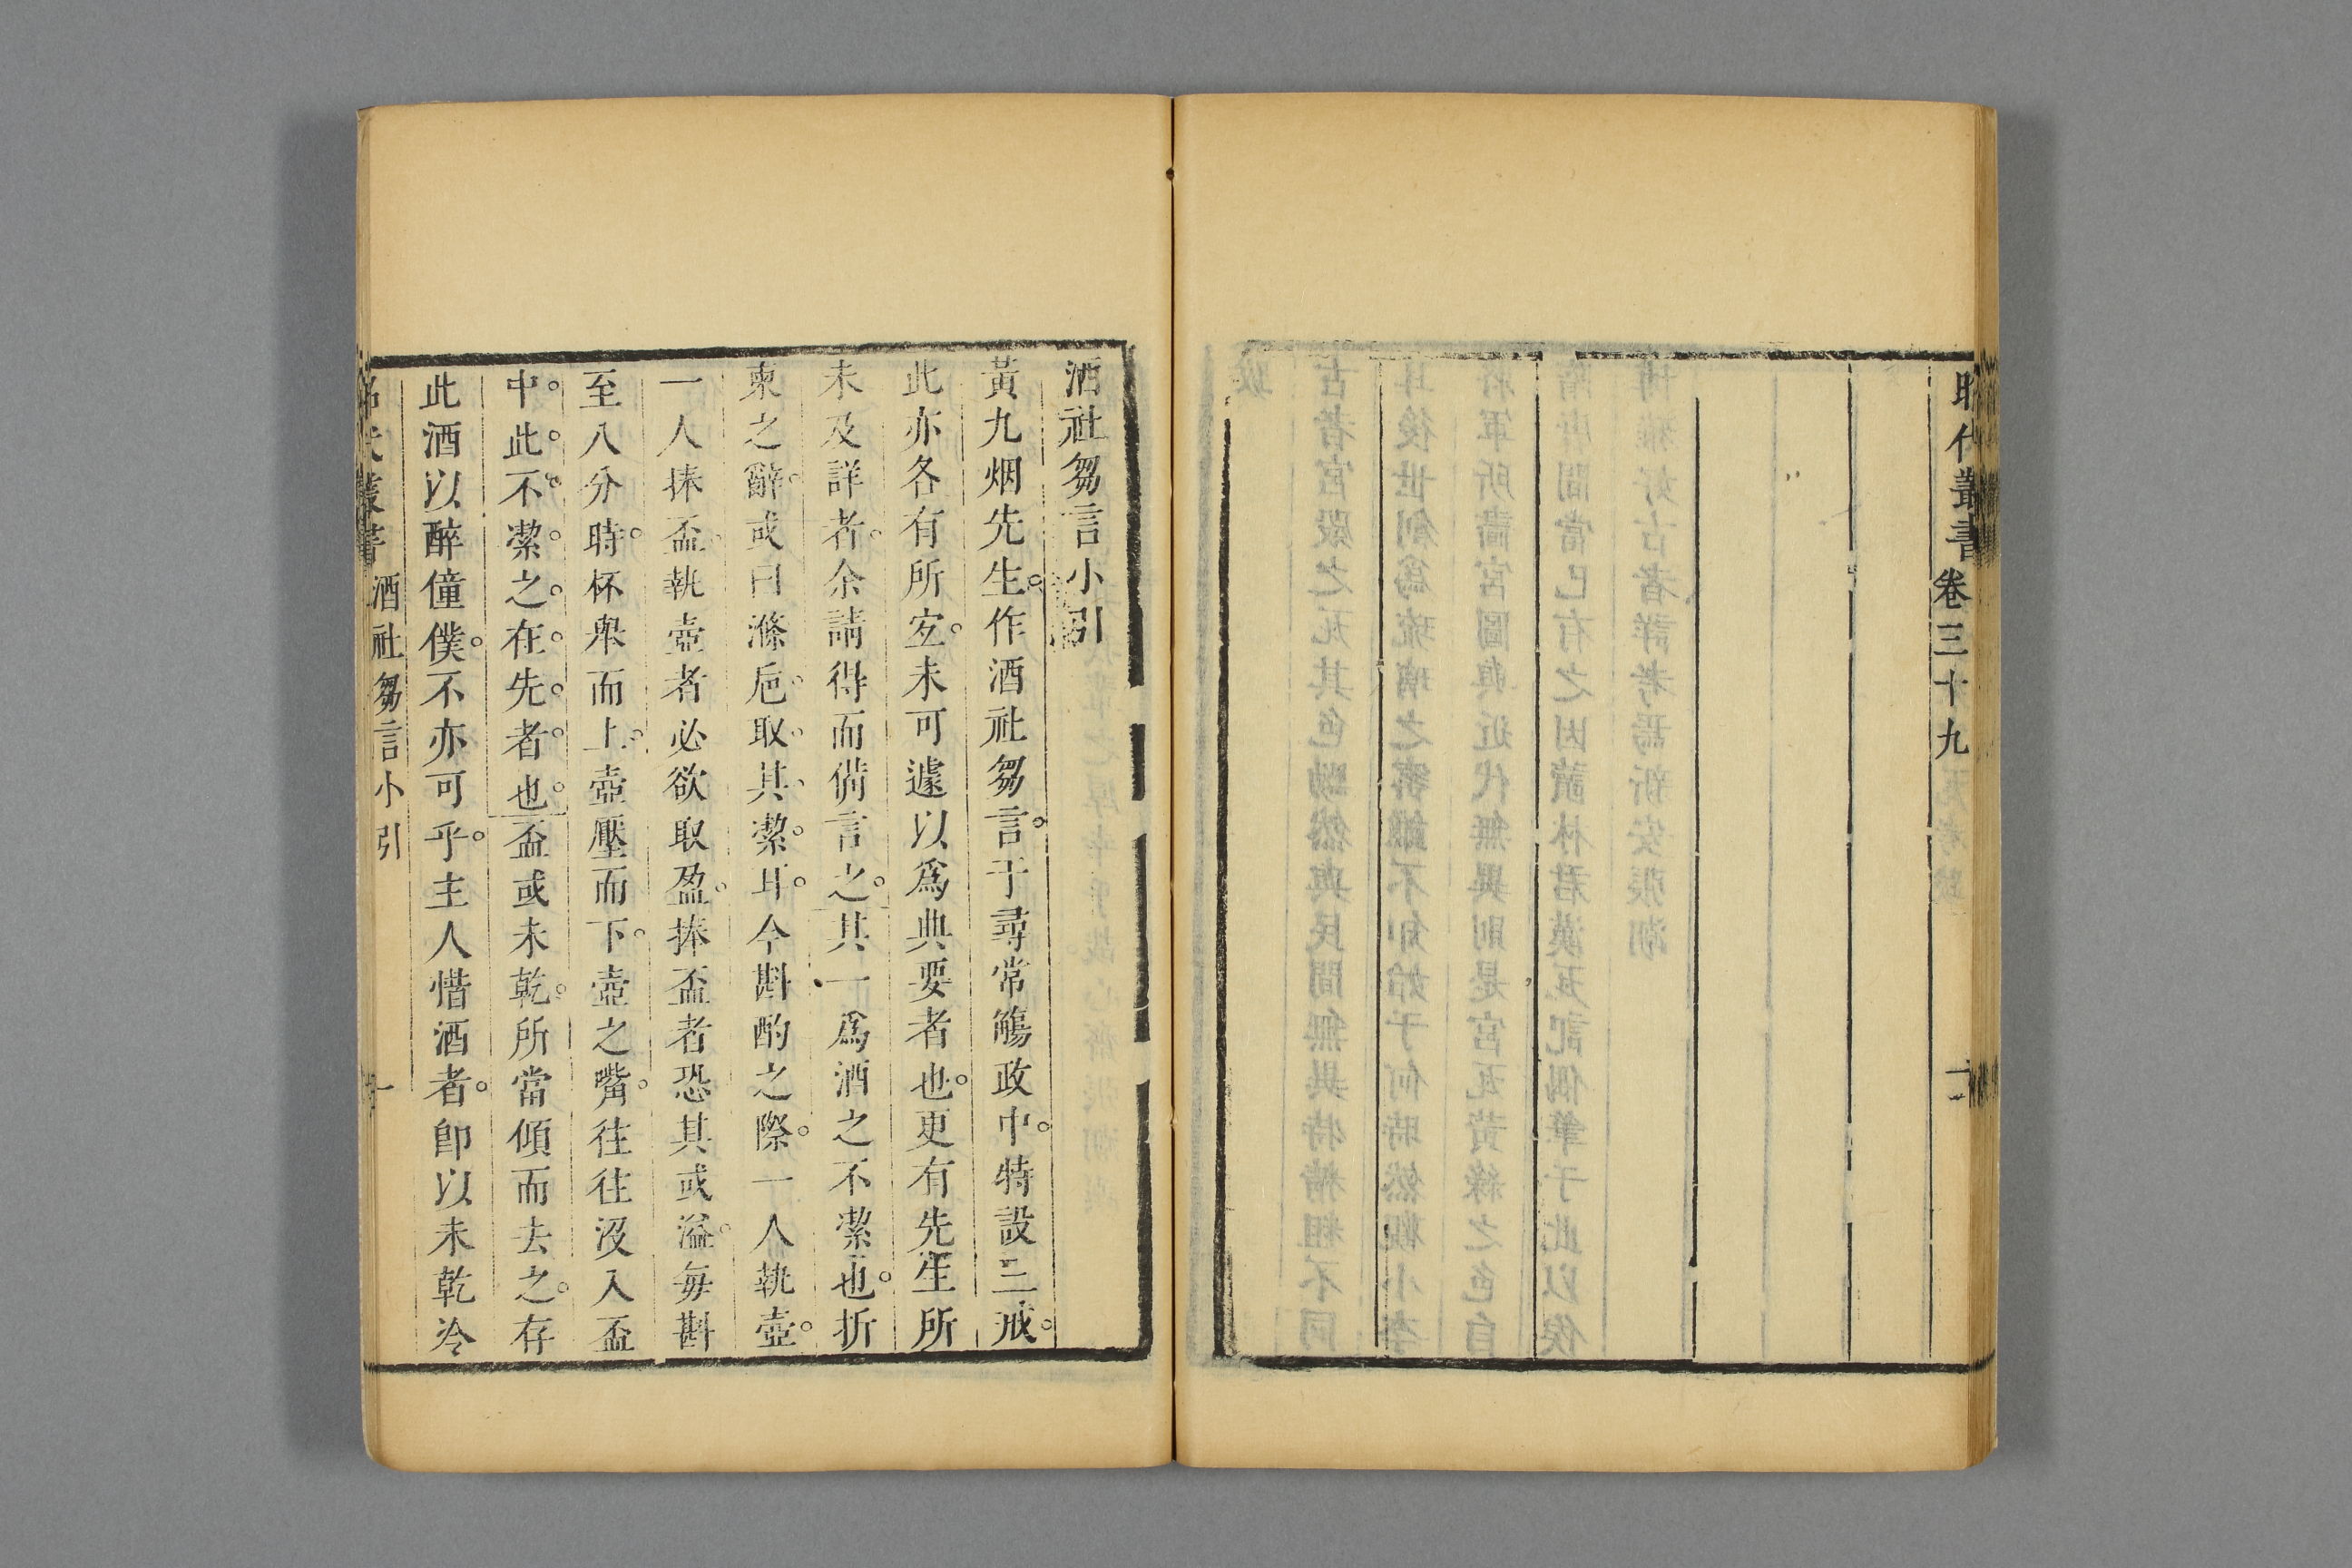 昭代叢書
卷三十九
二
酒社芻言小引
黃九烟先生作酒社芻言于尋常觴政中特設三戒
此亦各有所宐未可遽以爲典要者也更有先生所
未及詳者余請得而備言之其一爲酒之不潔也折
柬之辭或曰滌巵取其潔耳今斟酌之際一人執壺
一人捧盃執壺者必欲取盈捧盃者恐其或溢每斟
至八分時杯舉而上壺壓而下壺之嘴往往沒入盃
中此不潔之在先者也盃或未乾所當傾而去之存
此酒以醉僮僕不亦可乎主人惜酒者卽以未乾冷
叢書
酒社芻言小引
一